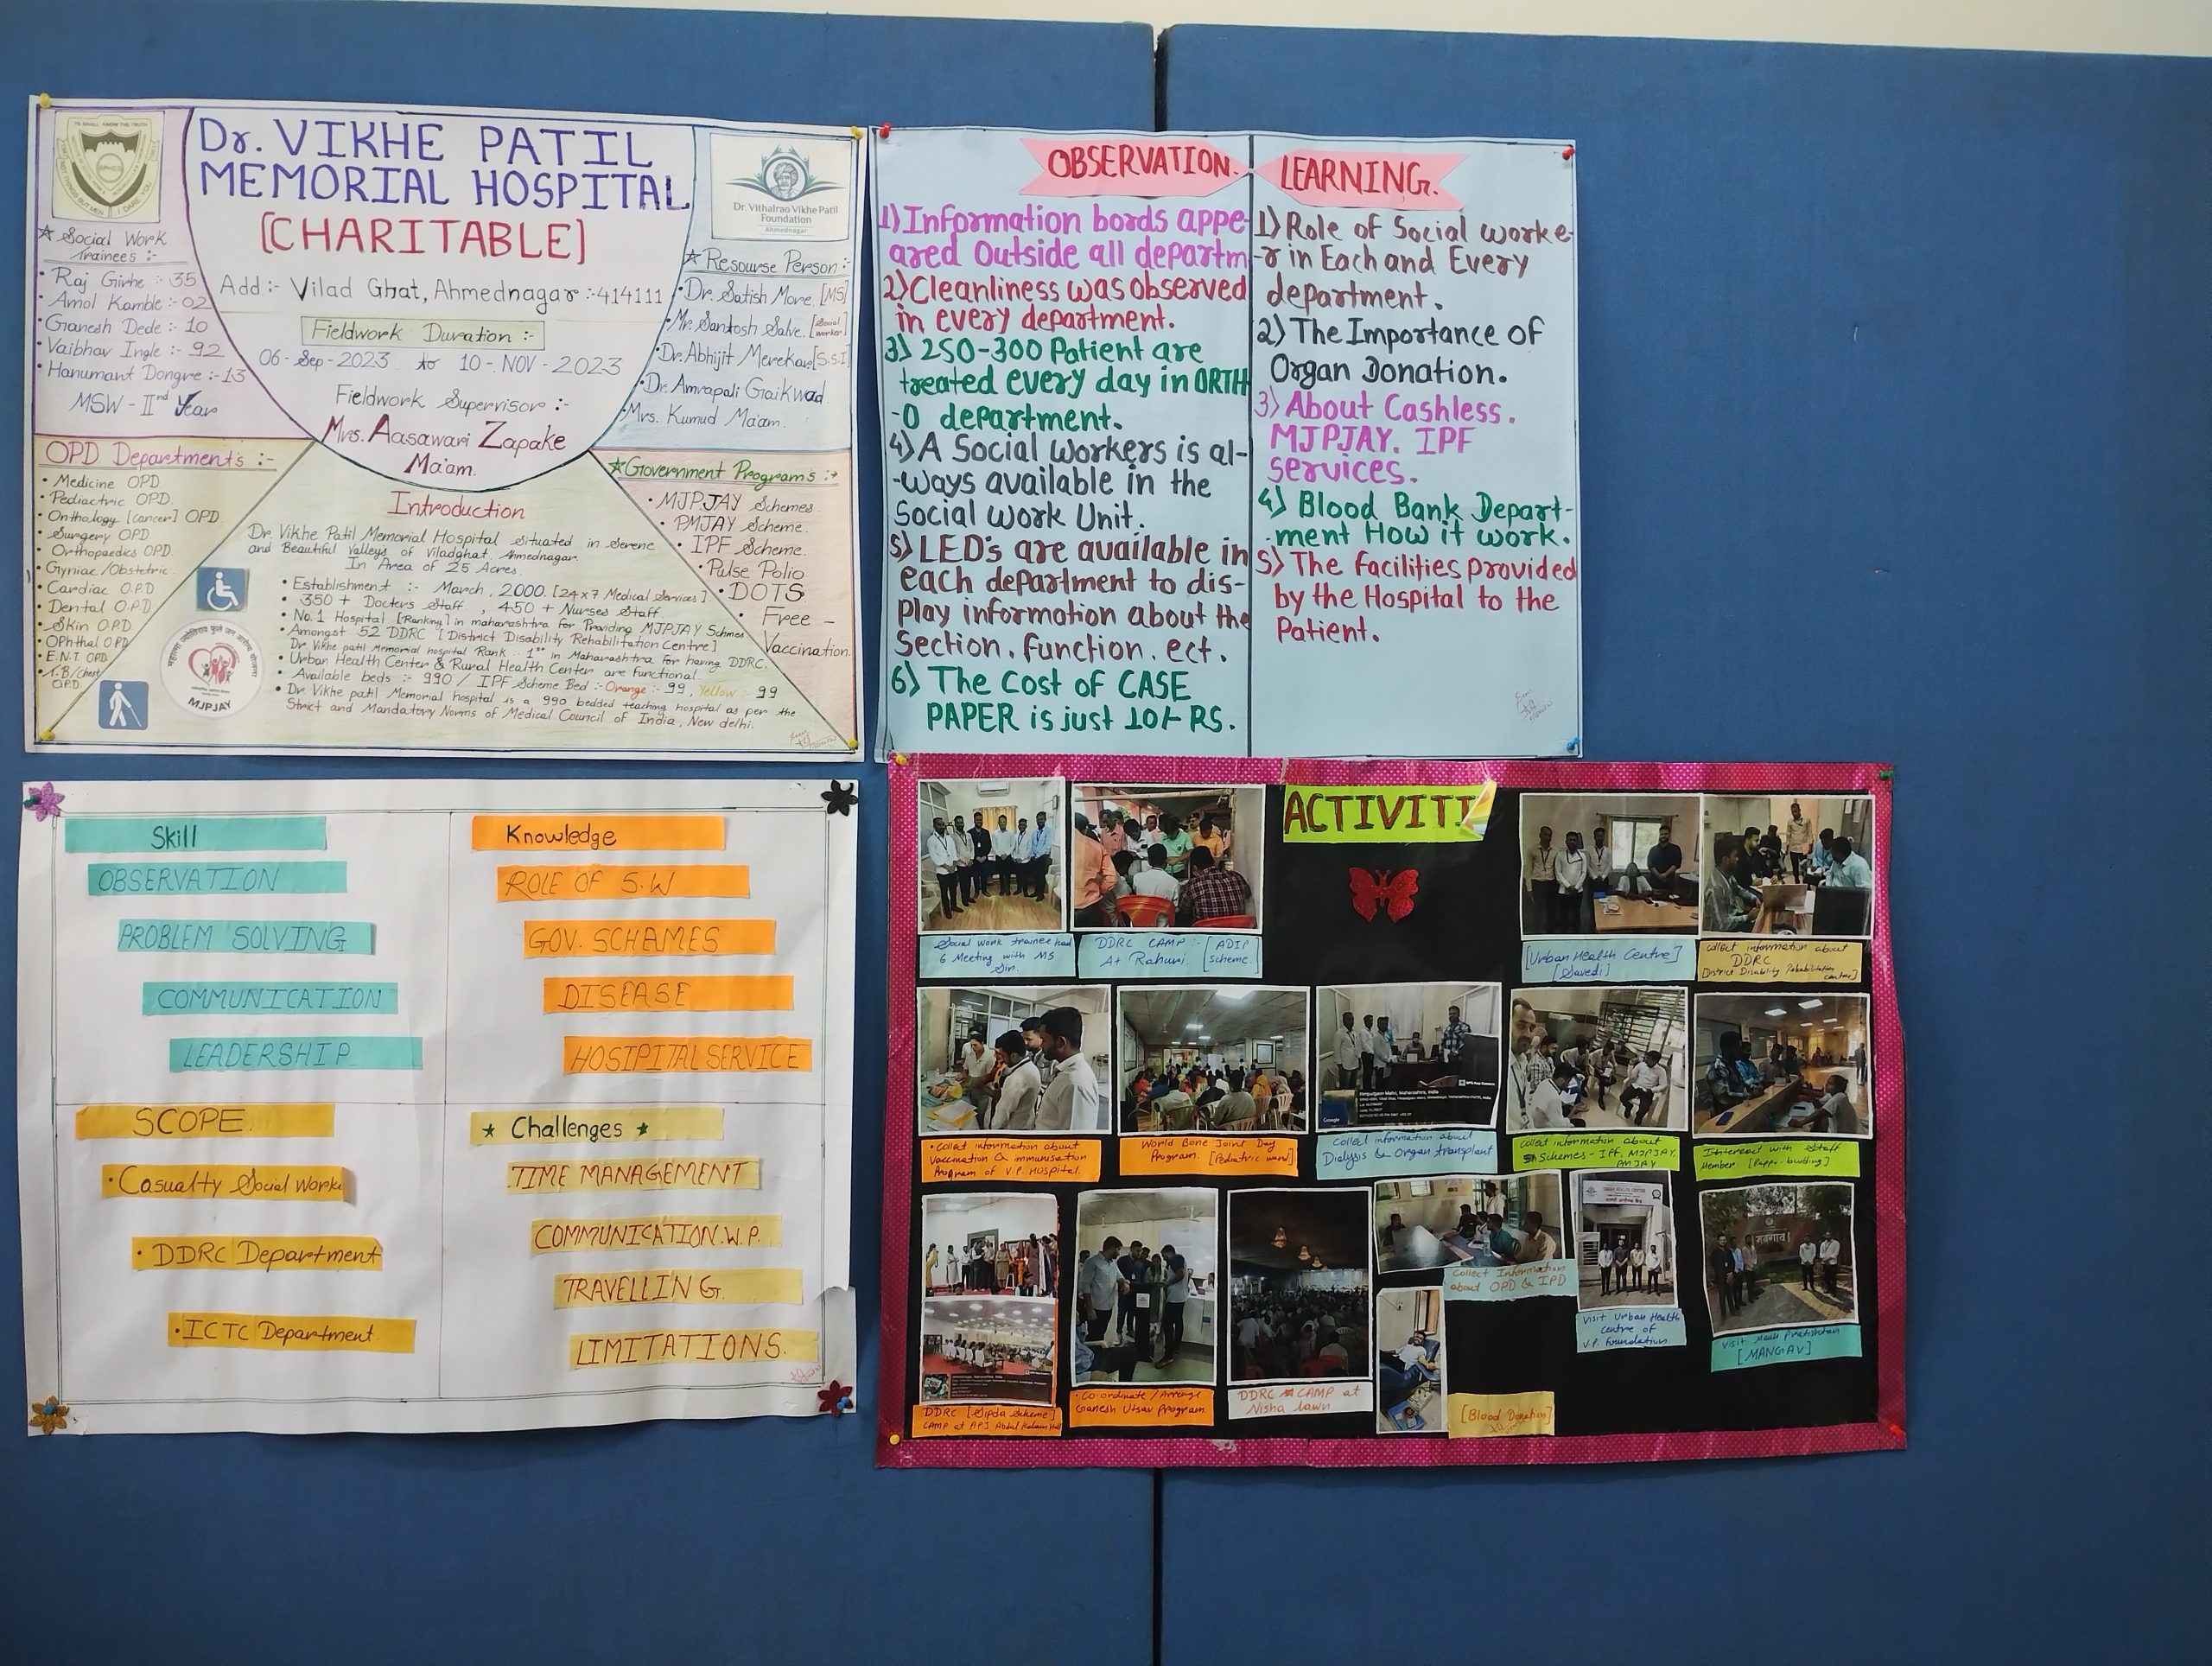 YE SHALL KNOW THE TRUTH
Dr. VIKHE PATIL
MEMORIAL HOSPITAL
[CHARITABLE]
Add :- Vilad Ghat, Ahmednagar :-414111
Fieldwork Duration :-
06-Sep-2023 to 10-NOV-2023
Fieldwork Supervisor :-
Mrs. Aasawari Zapake
Ma'am.
Social Work
Trainees :-
Raj Girhe :- 35
Amol Kamble :- 02
Ganesh Dede :- 10
Vaibhav Ingle :- 92
Hanumant Dongre :-13
MSW - IInd Year
Dr. Vithalrao Vikhe Patil
Foundation
Ahmednagar
Resourse Person :-
Dr. Satish More. [MS]
Mr. Santosh Salve. [Social
worker]
Dr. Abhijit Merekar [S.S.I]
Dr. Amrapali Gaikwad.
Mrs. Kumud Ma'am.
OPD Department's :-
Medicine OPD
Pediactric OPD.
Onthology [cancer] OPD.
Surgery OPD
Orthopaedics OPD.
Gyniac/Obstetric.
Cardiac O.P.D
Dental O.P.D
Skin OPD
OPhthal OPD
E.N.T. OPD
T.B/chest
OPD.
MJPJAY
Introduction
Dr. Vikhe Patil Memorial Hospital situated in Serene
and Beautiful Valleys of Viladghat, Ahmednagar.
In Area of 25 Acres.
Establishment :- March, 2000. [24x7 Medical Services]
350 + Docters Staff, 450 + Nurses Staff
No. 1 Hospital [Ranking] in maharashtra for Providing MJPJAY Schmes
Amongst 52 DDRC [District Disability Rehabilitation Centre]
Dr. Vikhe patil Memorial hospital Rank :- 1st in Maharashtra for having DDRC.
Urban Health Center & Rural Health Center are functional
Available beds :- 990 / IPF Scheme Bed :- Orange :- 99, Yellow :- 99
Dr. Vikhe patil Memorial hospital is a 990 bedded teaching hospital as per the
Strict and Mandatory Norms of Medical Council of India, New delhi.
Government Programs :-
MJPJAY Schemes
PMJAY Scheme.
IPF Scheme.
Pulse Polio
DOTS
Free -
Vaccination.
OBSERVATION.
1) Information bords appe-
ared Outside all departm
2) Cleanliness was observed
in every department.
3) 250-300 Patient are
treated every day in ORTH
-O department.
4) A Social Workers is al-
-ways available in the
Social Work Unit.
5) LED's are available in
each department to dis-
play information about the
Section. Function. ect.
6) The Cost of CASE
PAPER is just 10/- RS.
LEARNING.
1) Role of Social worke-
-r in Each and Every
department.
2) The Importance of
Organ Donation.
3) About Cashless.
MJPJAY. IPF
services.
4) Blood Bank Depart-
-ment How it work.
5) The facilities provided
by the Hospital to the
Patient.
Skill
OBSERVATION
PROBLEM SOLVING
COMMUNICATION
LEADERSHIP
Knowledge
ROLE OF S.W
GOV. SCHEMES
DISEASE
HOSIPITAL SERVICE
SCOPE.
Casualty Social Work
DDRC Department
ICTC Department
Challenges
TIME MANAGEMENT
COMMUNICATION.W.P.
TRAVELLING.
LIMITATIONS.
ACTIVITI
Social work trainee had
6 Meeting with MS
Sir.
DDRC CAMP :- [ADIP
At Rahuri. scheme.]
[Urban Health Centre]
[Savedi]
collect information about
DDRC
[District Disability Rehabilitation
centre]
Collect information about
Vaccination & immunisation
Program of V.P. Hospital.
World Bone Joint Day
Program. [Pediatric ward]
Collect information about
Dialysis & Organ transplant
Collect information about
Schemes - IPF. MJPJAY.
PMJAY
Interact with Staff
Member
DDRC [Sipda Scheme]
CAMP at APJ Abdul Kalam Hall
Co-ordinate / Arrange
Ganesh Utsav Program.
DDRC CAMP at
Nisha lawn
Collect Information
about OPD & IPD
[Blood Donation]
Visit Urban Health
Centre of
V.P. Foundation
[MANGAV]